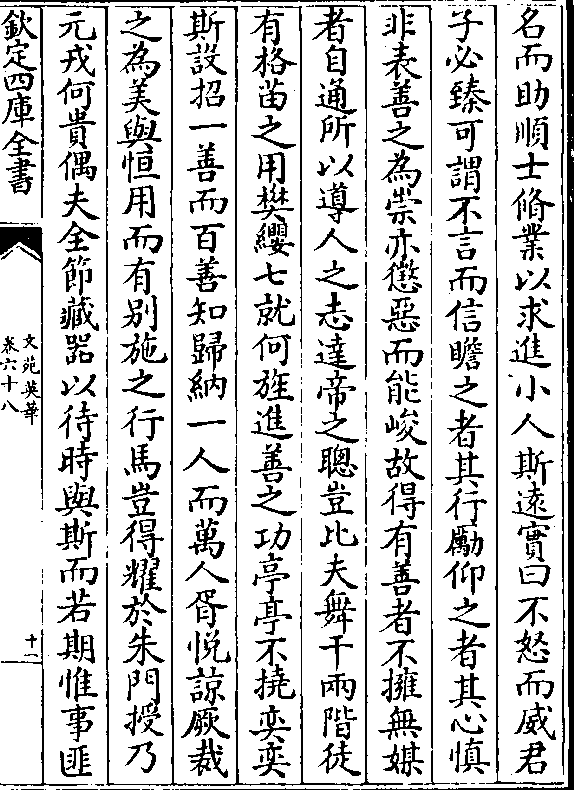 名而助順士脩業以求進小人斯遠實曰不怒而威君
子必臻可謂不言而信瞻之者其行勵仰之者其心慎
非表善之為崇亦懲惡而能峻故得有善者不擁無媒
者自通所以導人之志達帝之聰豈比夫舞干兩階徒
有格苗之用樊纓七就何旌進善之功亭亭不撓奕奕
斯設招一善而百善知歸納一人而萬人胥悅諒厥裁
之為美與恒用而有別施之行馬豈得耀於朱門授乃
元戎何貴偶夫全節藏器以待時與斯而若期惟事匪
欽定四庫全書
文苑英華
卷六十八
十一